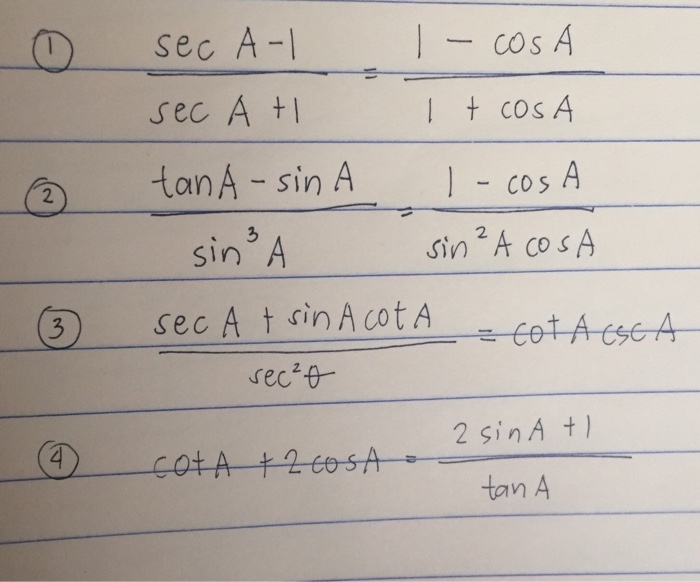 ① sec A - 1 / sec A + 1 = 1 - cos A / 1 + cos A
② tan A - sin A / sin³ A = 1 - cos A / sin² A cos A
③ sec A + sin A cot A / sec² θ = cot A csc A
④ cot A + 2 cos A = 2 sin A + 1 / tan A